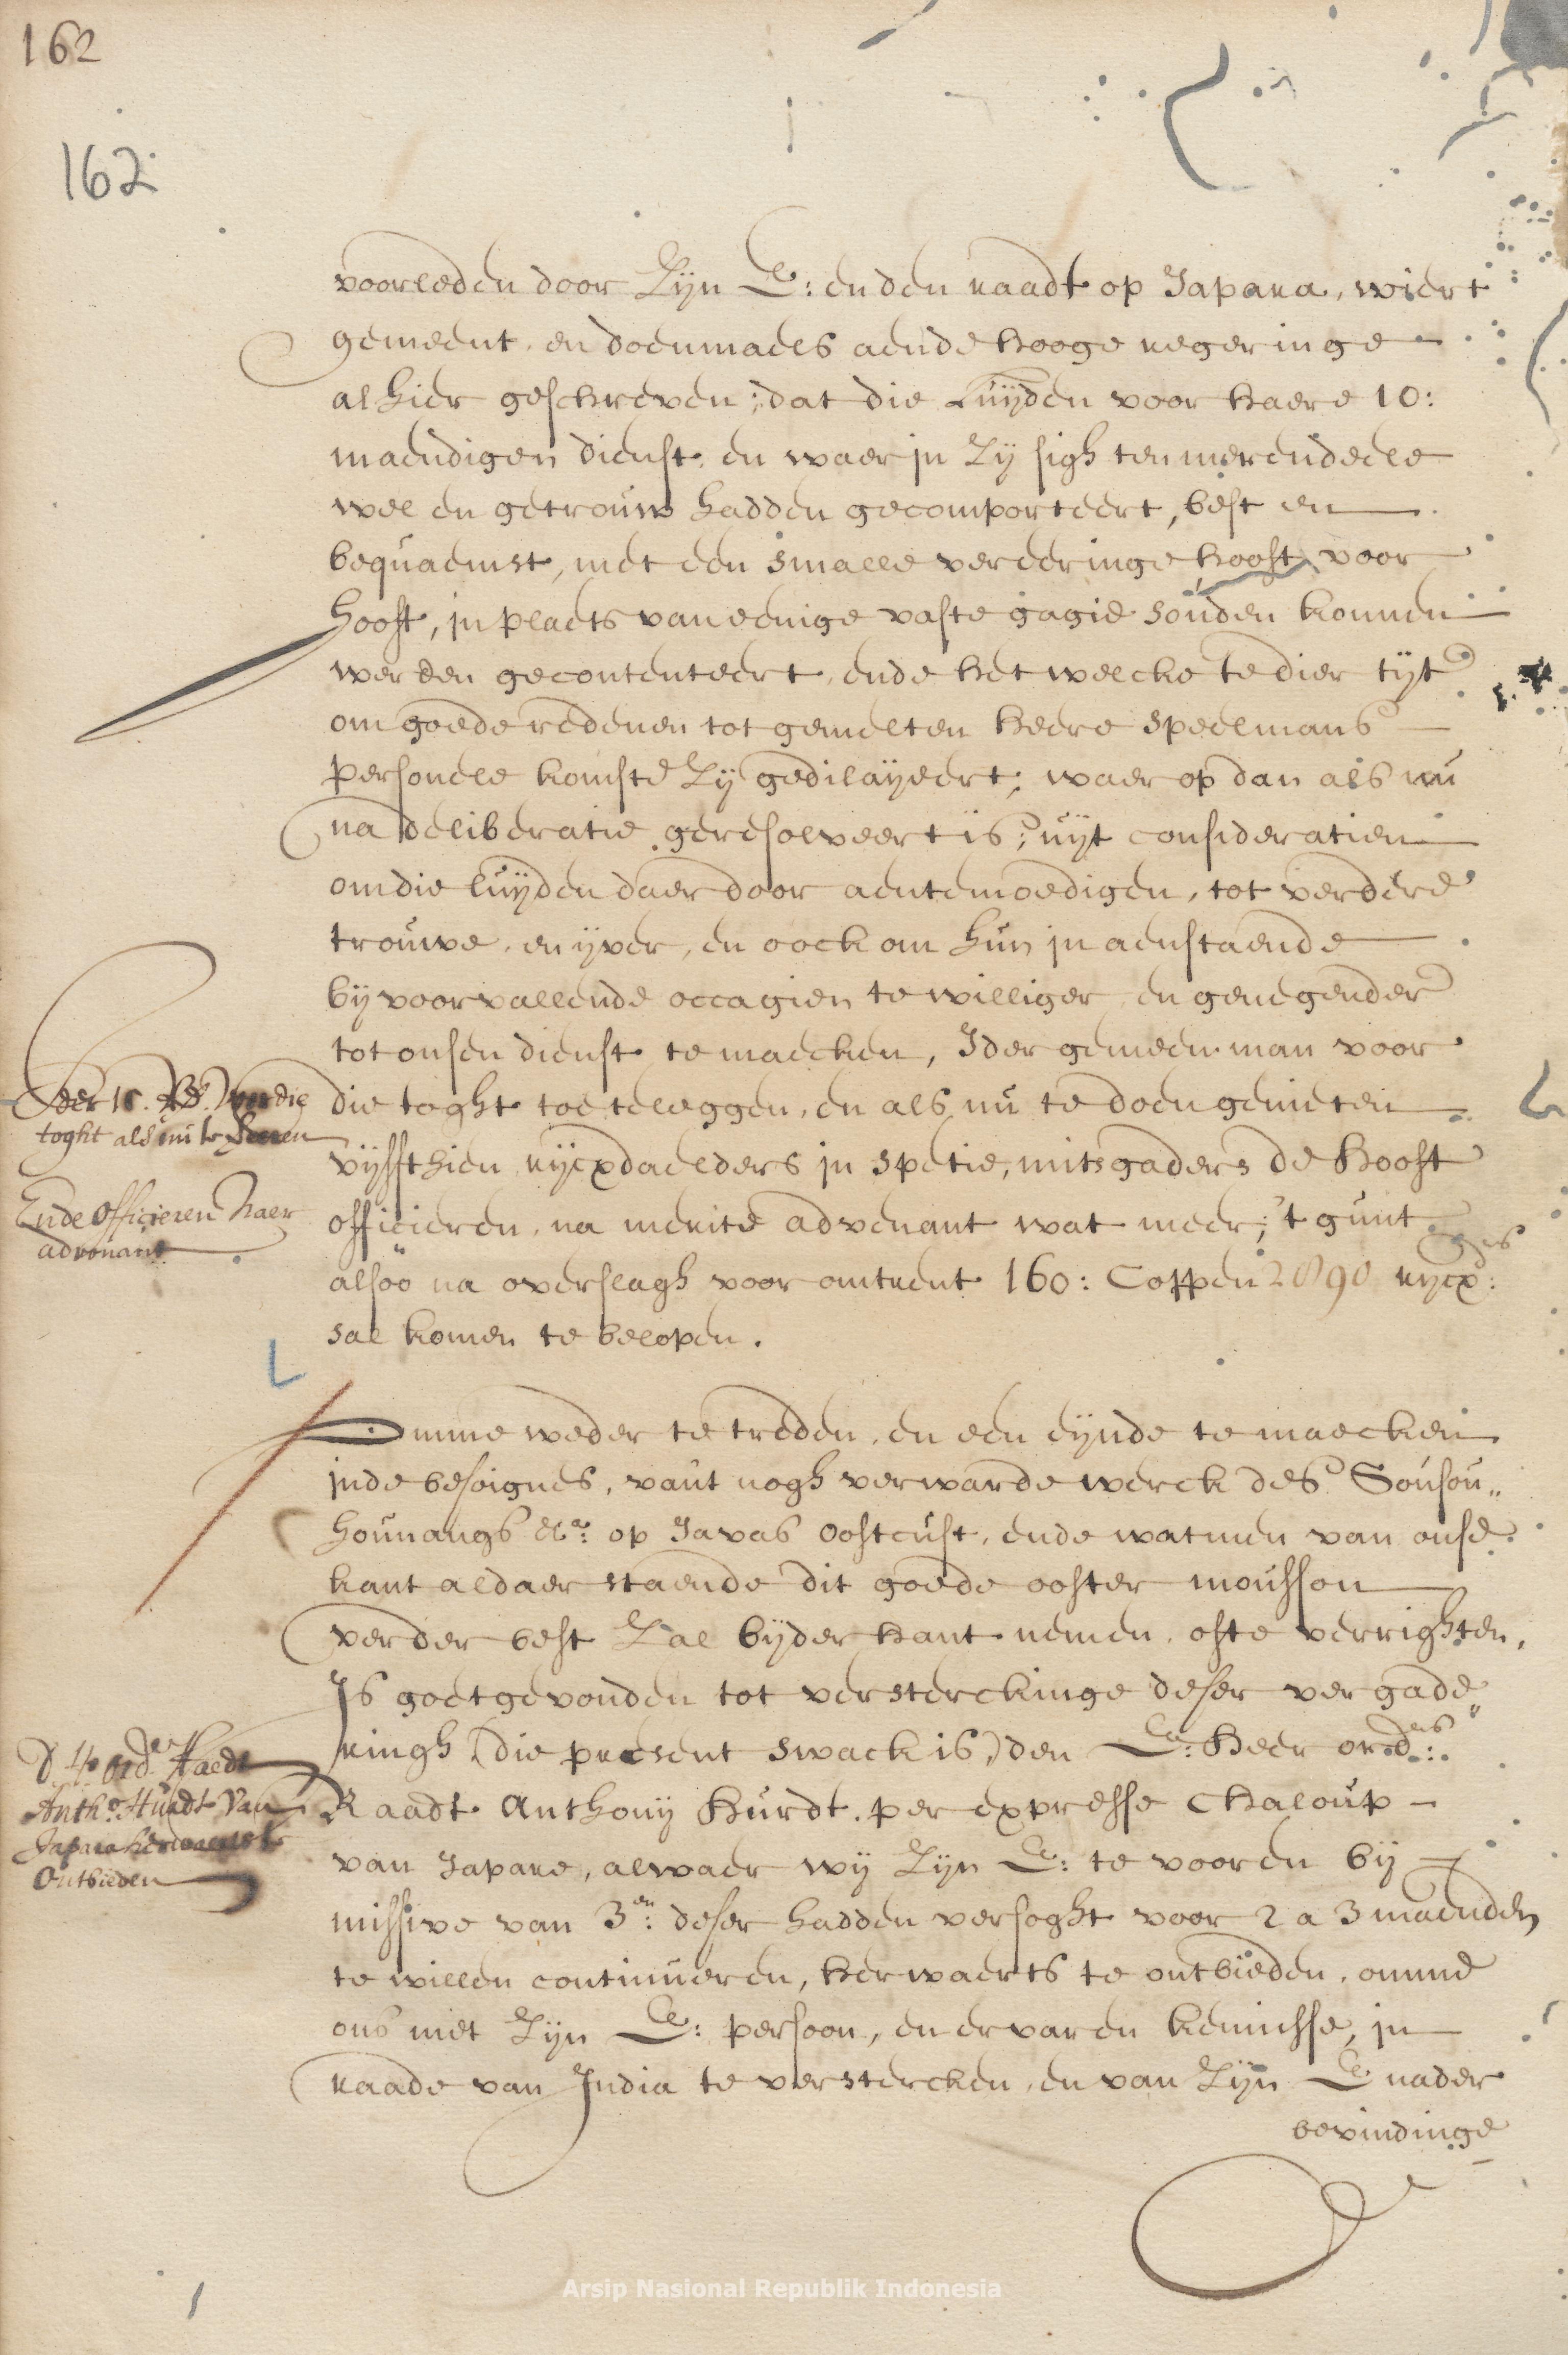 162
162
voorleden door Zijn E: en den raadt op Japara, wiert
gemeent, en doenmaels aende hooge regeringe
alhier geschreven; dat die Luijden voor haere 10:
maendigen dienst, en waer in Zij sigh ten merendeele
wel en getrouw hadden gecomporteert, best en
bequaemst, met een smalle vereeringe hooft voor
hooft, in plaets van eenige vaste gagie souden konnen
werden gecontenteert, ende het welcke te dier tijt
om goede redenen tot gemelten heere speelmans
persoonele komste Zij gedilaijeert; waer op dan als nu
na deliberatie geresolveert is; uijt consideratien
om die luijden daer door aentemoedigen, tot verdere
trouwe, en ijver, en oock om hun in aenstaende
bij voorvallende occagien te williger, en genegender
tot onsen dienst te maecken, Ider gemeen man voor
die toght toe te leggen, en als nu te doen genieten
vijffthien rijcxdaelders in spetie, mitsgaders de hooft
officieren, na merite advenant wat meer; 't gunt
alsoo na overslagh voor omtrent 160: Coppen 2890 rijcx:ds
sal komen te belopen.
toght als nu te
Ende Officieren haer
advenant
Omme weder te treden, en een eijnde te maecken
inde besoignes, vant nogh verwarde werck des Sousou„
hounangs etca: op Javas Oostcust, ende wat men van onse
kant aldaer staende dit goede ooster mousson
verder best Zal bijder hant nemen, ofte verrighten,
Is goetgevonden tot versterckinge deser vergade„
ringh (die present swack is,) den Ed: Heer ord:ris
Raadt Anthonij Hurdt. per expresse Chaloup
van Japare, alwaer wij Zijn E: te vooren bij
missive van 3en: deser hadden versoght voor 2 a 3 maenden
te willen continueren, herwaerts te ontbieden, omme
ons met Zijn E: persoon, en ervaren kennisse, in
raade van India te verstercken, en van Zijn E nader
bevindinge
Raedt
Antho: Hurdt van
Japara herwaerts te
Ontbieden
Arsip Nasional Republik Indonesia